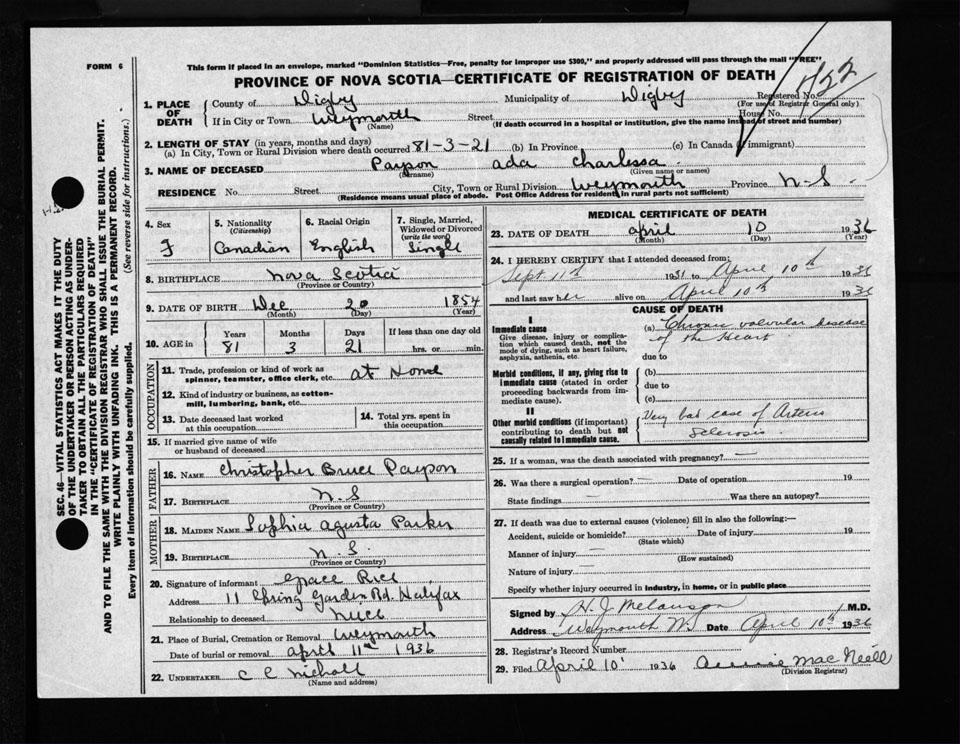 FORM 6
This form if placed in an envelope, marked "Dominion Statistics—Free, penalty for improper use $300," and properly addressed will pass through the mail "FREE"
PROVINCE OF NOVA SCOTIA—CERTIFICATE OF REGISTRATION OF DEATH
422
1. PLACE OF DEATH County of Digby Municipality of Digby Registered No.
(For use of Registrar General only)
If in City or Town Weymouth Street House No.
(Name) (If death occurred in a hospital or institution, give the name instead of street and number)
2. LENGTH OF STAY (in years, months and days)
(a) In City, Town or Rural Division where death occurred 81-3-21 (b) In Province (c) In Canada (if immigrant)
3. NAME OF DECEASED Payson Ada Charlessa
(Surname) (Given name or names)
RESIDENCE No. Street City, Town or Rural Division Weymouth Province N-S
(Residence means usual place of abode. Post Office Address for residents in rural parts not sufficient)
4. Sex F
5. Nationality (Citizenship) Canadian
6. Racial Origin English
7. Single, Married, Widowed or Divorced (write the word) Single
8. BIRTHPLACE Nova Scotia
(Province or Country)
9. DATE OF BIRTH Dec 20 1854
(Month) (Day) (Year)
10. AGE in Years 81 Months 3 Days 21 If less than one day old hrs. or min.
OCCUPATION
11. Trade, profession or kind of work as spinner, teamster, office clerk, etc. at Home
12. Kind of industry or business, as cotton-mill, lumbering, bank, etc.
13. Date deceased last worked at this occupation
14. Total yrs. spent in this occupation
15. If married give name of wife or husband of deceased
FATHER
16. NAME Christopher Bruce Payson
17. BIRTHPLACE N.S
(Province or Country)
MOTHER
18. MAIDEN NAME Sophia Agusta Parker
19. BIRTHPLACE N.S.
(Province or Country)
20. Signature of informant Grace Rice
Address 11 Spring Garden Rd. Halifax
Relationship to deceased niece
21. Place of Burial, Cremation or Removal Weymouth
Date of burial or removal April 11th 1936
22. UNDERTAKER C C Nicholl
(Name and address)
MEDICAL CERTIFICATE OF DEATH
23. DATE OF DEATH April 10 1936
(Month) (Day) (Year)
24. I HEREBY CERTIFY that I attended deceased from:
Sept 11th 1931 to April, 10th 1936
and last saw her alive on April 10th 1936
CAUSE OF DEATH
I
Immediate cause
Give disease, injury or complication which caused death, not the mode of dying, such as heart failure, asphyxia, asthenia, etc.
(a) Chronic valvular disease
of the Heart
due to
Morbid conditions, if any, giving rise to immediate cause (stated in order proceeding backwards from immediate cause).
(b)
due to
(c)
II
Other morbid conditions (if important) contributing to death but not causally related to immediate cause.
Very bad case of Arterio
Sclerosis
25. If a woman, was the death associated with pregnancy? —
26. Was there a surgical operation? — Date of operation 19
State findings — Was there an autopsy? —
27. If death was due to external causes (violence) fill in also the following:—
Accident, suicide or homicide? — Date of injury 19
(State which)
Manner of injury —
(How sustained)
Nature of injury —
Specify whether injury occurred in industry, in home, or in public place
Signed by H. J. Melanson M.D.
Address Weymouth N. Date April 10th 1936
28. Registrar's Record Number
29. Filed April 10' 1936 Mac Neill
(Division Registrar)
SEC. 46—VITAL STATISTICS ACT MAKES IT THE DUTY
OF THE UNDERTAKER OR PERSON ACTING AS UNDER-
TAKER TO OBTAIN ALL THE PARTICULARS REQUIRED
IN THE "CERTIFICATE OF REGISTRATION OF DEATH"
AND TO FILE THE SAME WITH THE DIVISION REGISTRAR WHO SHALL ISSUE THE BURIAL PERMIT.
WRITE PLAINLY WITH UNFADING INK. THIS IS A PERMANENT RECORD.
Every item of information should be carefully supplied. (See reverse side for instructions.)